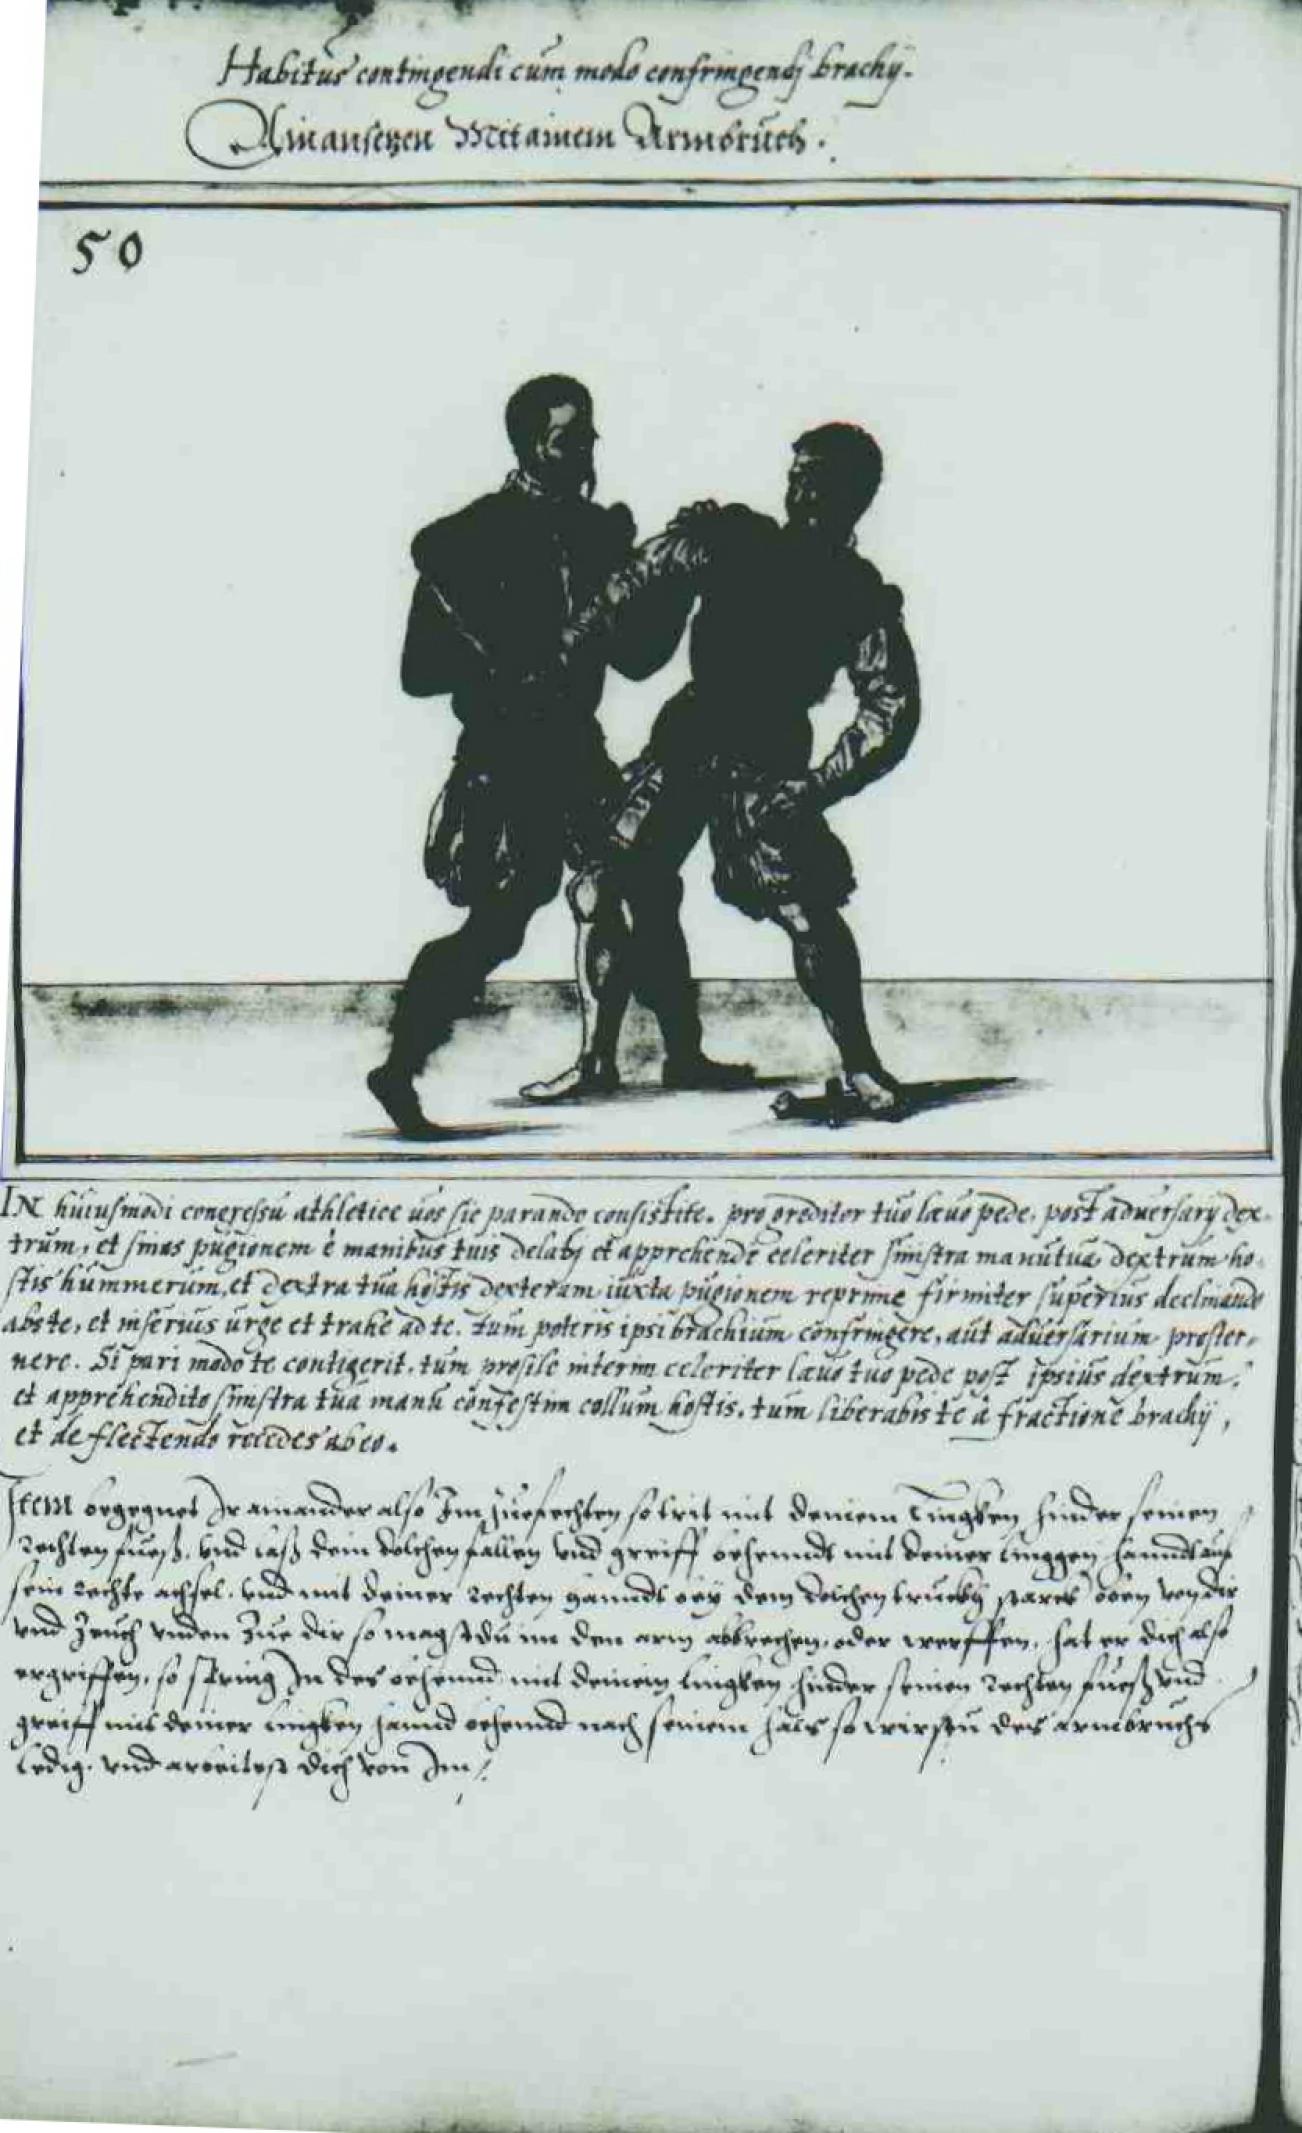 Habitus contingendi cum modo confringendj brachÿ.
Ain ansetzen Mit ainem Armbruch.
50
IN huiusmodi congressu athletice uos sic parando consistite. progreditor tuo lævo pede, post adversarÿ dex-
trum, et sinas pugionem è manibus tuis delabj et apprehende celeriter sinistra manu tua dextrum ho-
stis hummerum, et dextra tua hostis dexteram iuxta pugionem reprime firmiter superius declinando
abs te, et inferius urge et trahe ad te. tum poteris ipsi brachium confringere, aut adversarium proster-
nere. Si pari modo te contigerit, tum prosile interim celeriter lævo tuo pede post ipsius dextrum,
et apprehendito sinistra tua manu confestim collum hostis, tum liberabis te à fractione brachÿ,
et deflectendo recedes ab eo.
Item begegnet Ir ainander also Im zuefechten so trit mit deinem Lingken hinder seinen
rechten fueß, und laß dein dolchen fallen und greiff behenndt mit deiner linggen hanndt auf
sein rechte achsel, und mit deiner rechten hanndt beÿ dem dolchen truckh starck oben von dir
und zeuch unden zue dir so magstdu im den arm abbrechen, oder werffen, hat er dich also
ergriffen, so spring In des behennd mit deinem lingken hinder seinen rechten fueß und
greiff mit deiner lingken hannd behennd nach seinem hals so wirstu des armbruchs
ledig, und arbeitest dich von Im